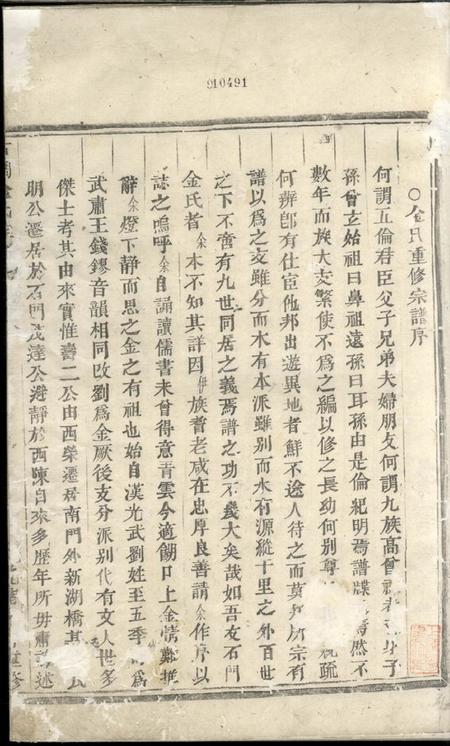 910491
○金氏重修宗譜序
何謂五倫君臣父子兄弟夫婦朋友何謂九族高曾祖考 子
孫會立始祖曰鼻祖遠孫曰耳孫由是倫紀明焉譜牒 焉然不
數年而族大支繁使不爲之編以修之長幼何別尊 親疏
何辨卽有仕宦他邦出遊異地者鮮不途人待之而莫 所宗有
譜以爲之支雖分而木有本派雖別而水有源縱千里之外百世
之下不啻有九世同居之義焉譜之功不幾大矣哉如吾友石門
金氏者余本不知其詳因 族耆老咸在忠厚良善請余作序以
誌之嗚呼余自誦讀儒書未曾得意青雲今適餬口上金情難推
辭余燈下靜而思之金之有祖也始自漢光武劉姓至五季 爲
武肅王錢鏐音韻相同改劉爲金厥後支分派別代有文人世多
傑士者其由來實惟壽二公由西柴遷居南門外新湖橋
明公遷居於石門茂達公避靜於西陳自來多歷年所毋庸 述
重修